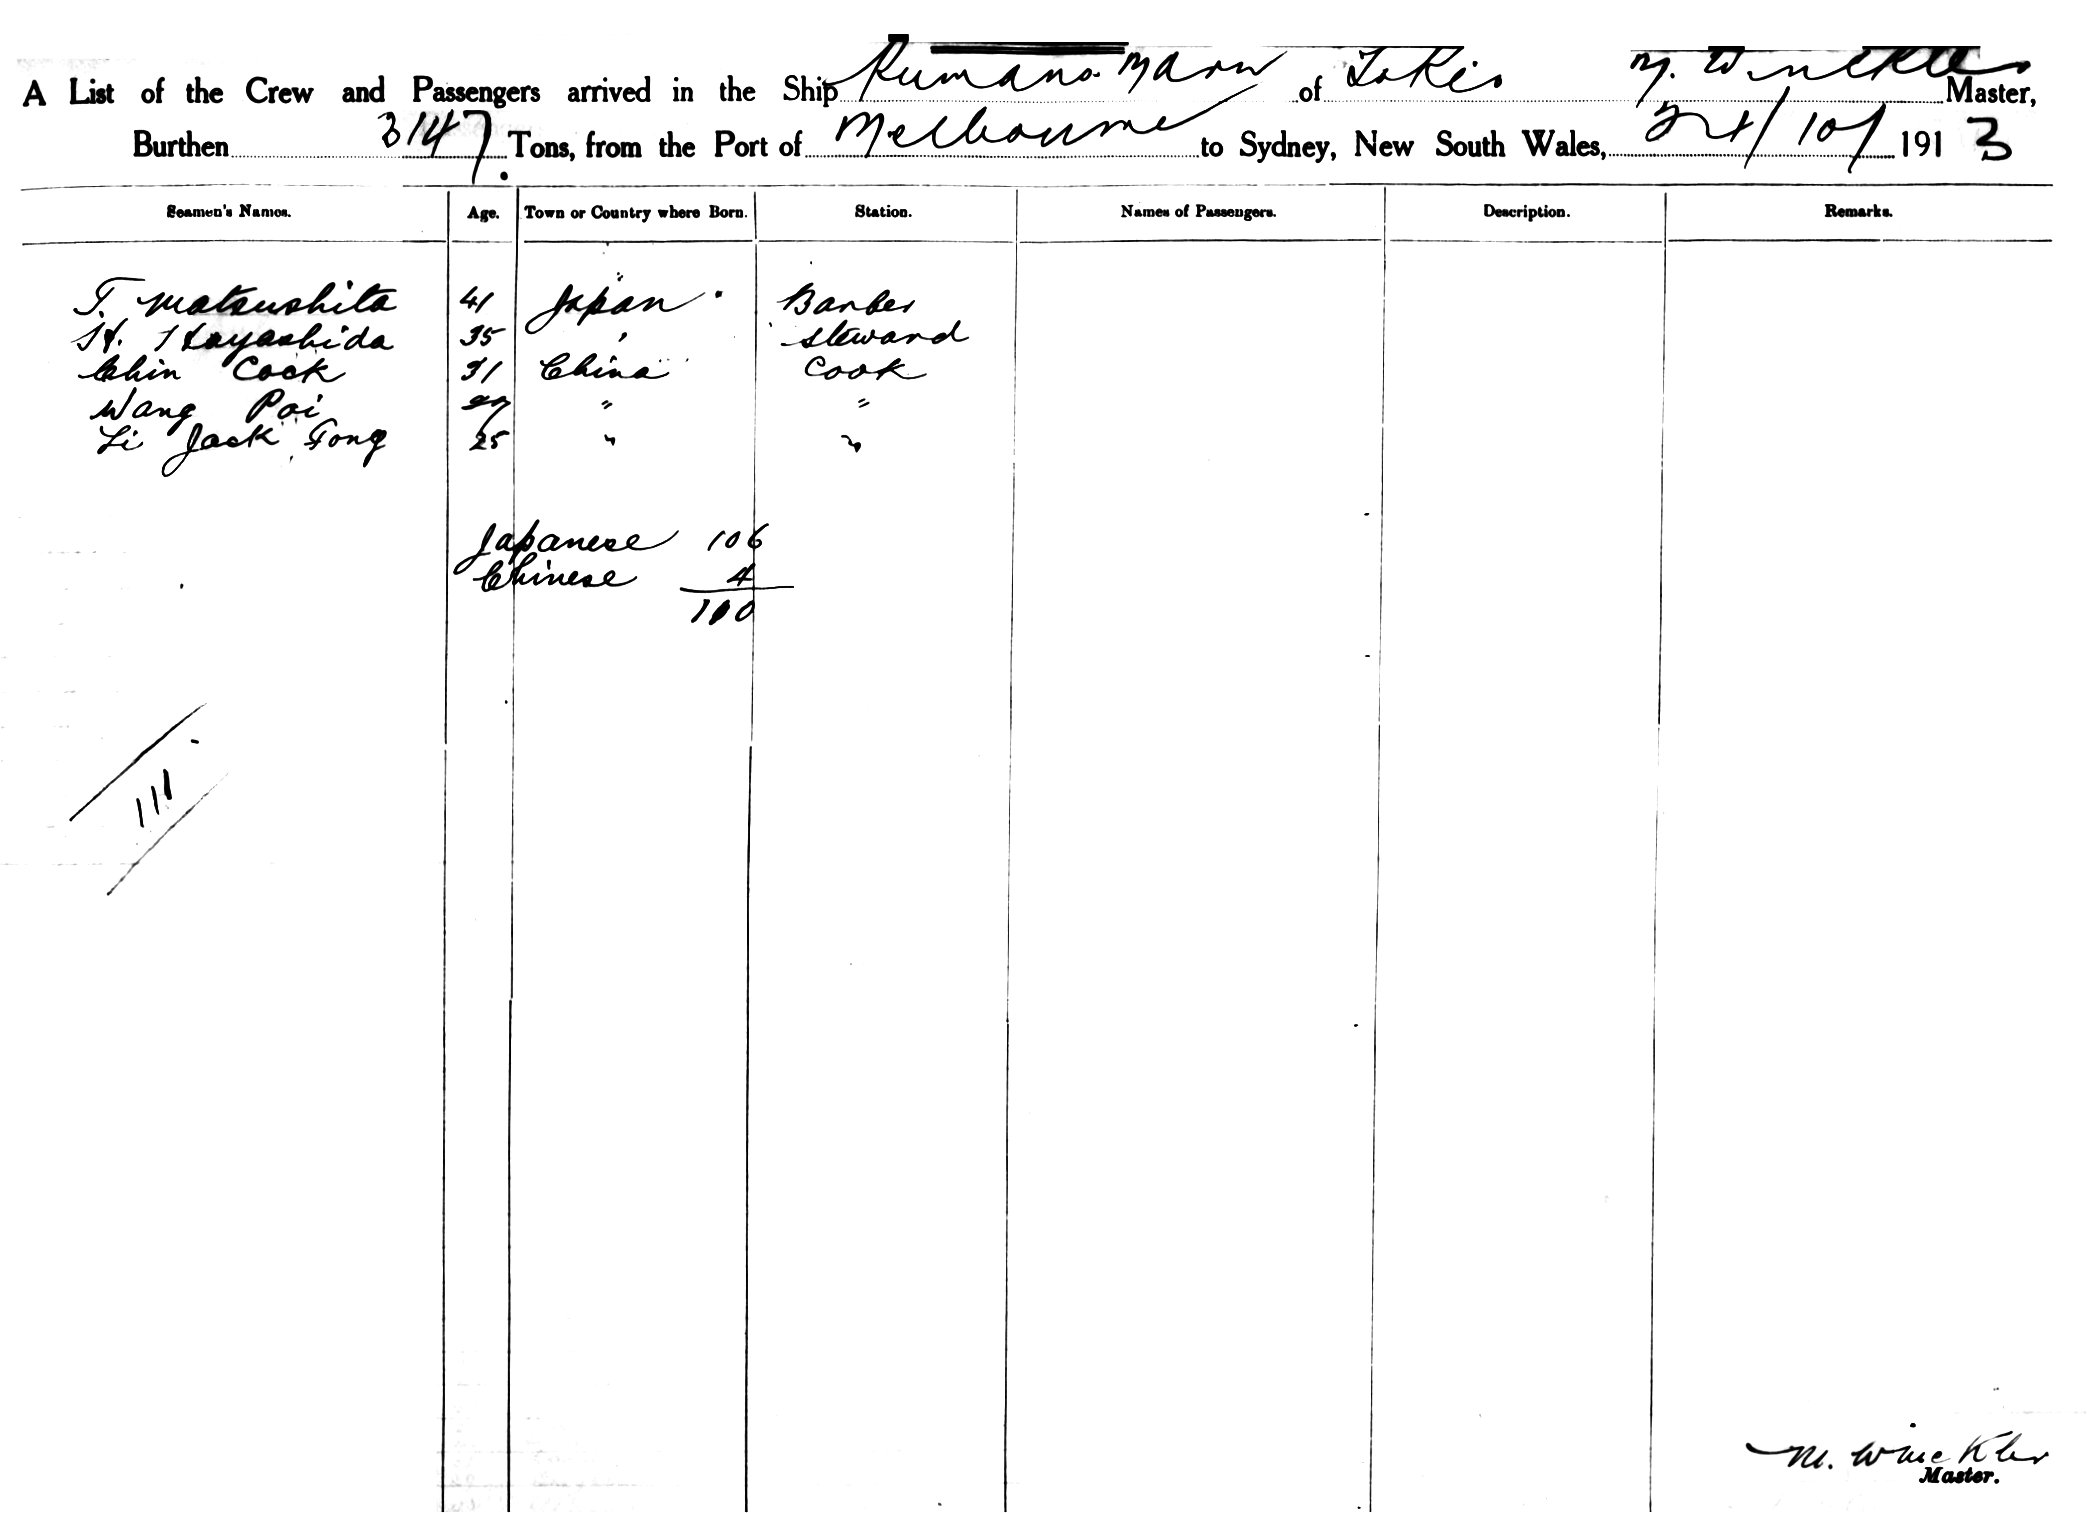 A List of the Crew and Passengers arrived in the Ship Kumano Maru of Tokio M. Winckler Master,
Burthen 3147. Tons, from the Port of Melbourne to Sydney, New South Wales, 24/10/1913
Seamen's Names. Age. Town or Country where Born. Station. Names of Passengers. Description. Remarks.
T. Matsushita 41 Japan Barber
H. Hayashida 35 " Steward
Chin Cock 31 China Cook
Wang Poi " "
Li Jack Fong 25 " "
Japanese 106
Chinese 4
110
111
M. Winckler
Master.